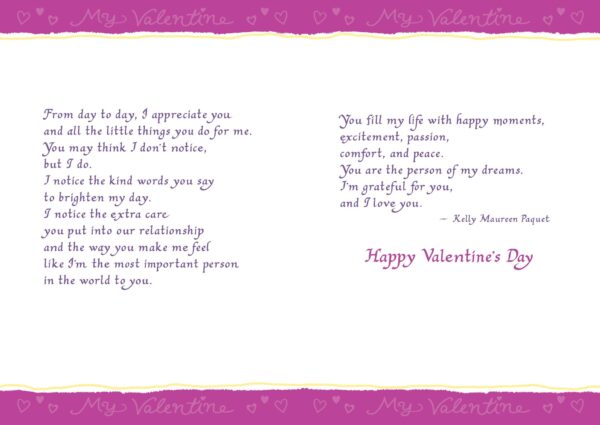 My Valentine My Valentine
From day to day, I appreciate you
and all the little things you do for me.
You may think I don't notice,
but I do.
I notice the kind words you say
to brighten my day.
I notice the extra care
you put into our relationship
and the way you make me feel
like I'm the most important person
in the world to you.
You fill my life with happy moments,
excitement, passion,
comfort, and peace.
You are the person of my dreams.
I'm grateful for you,
and I love you.
— Kelly Maureen Paquet
Happy Valentine's Day
My Valentine My Valentine